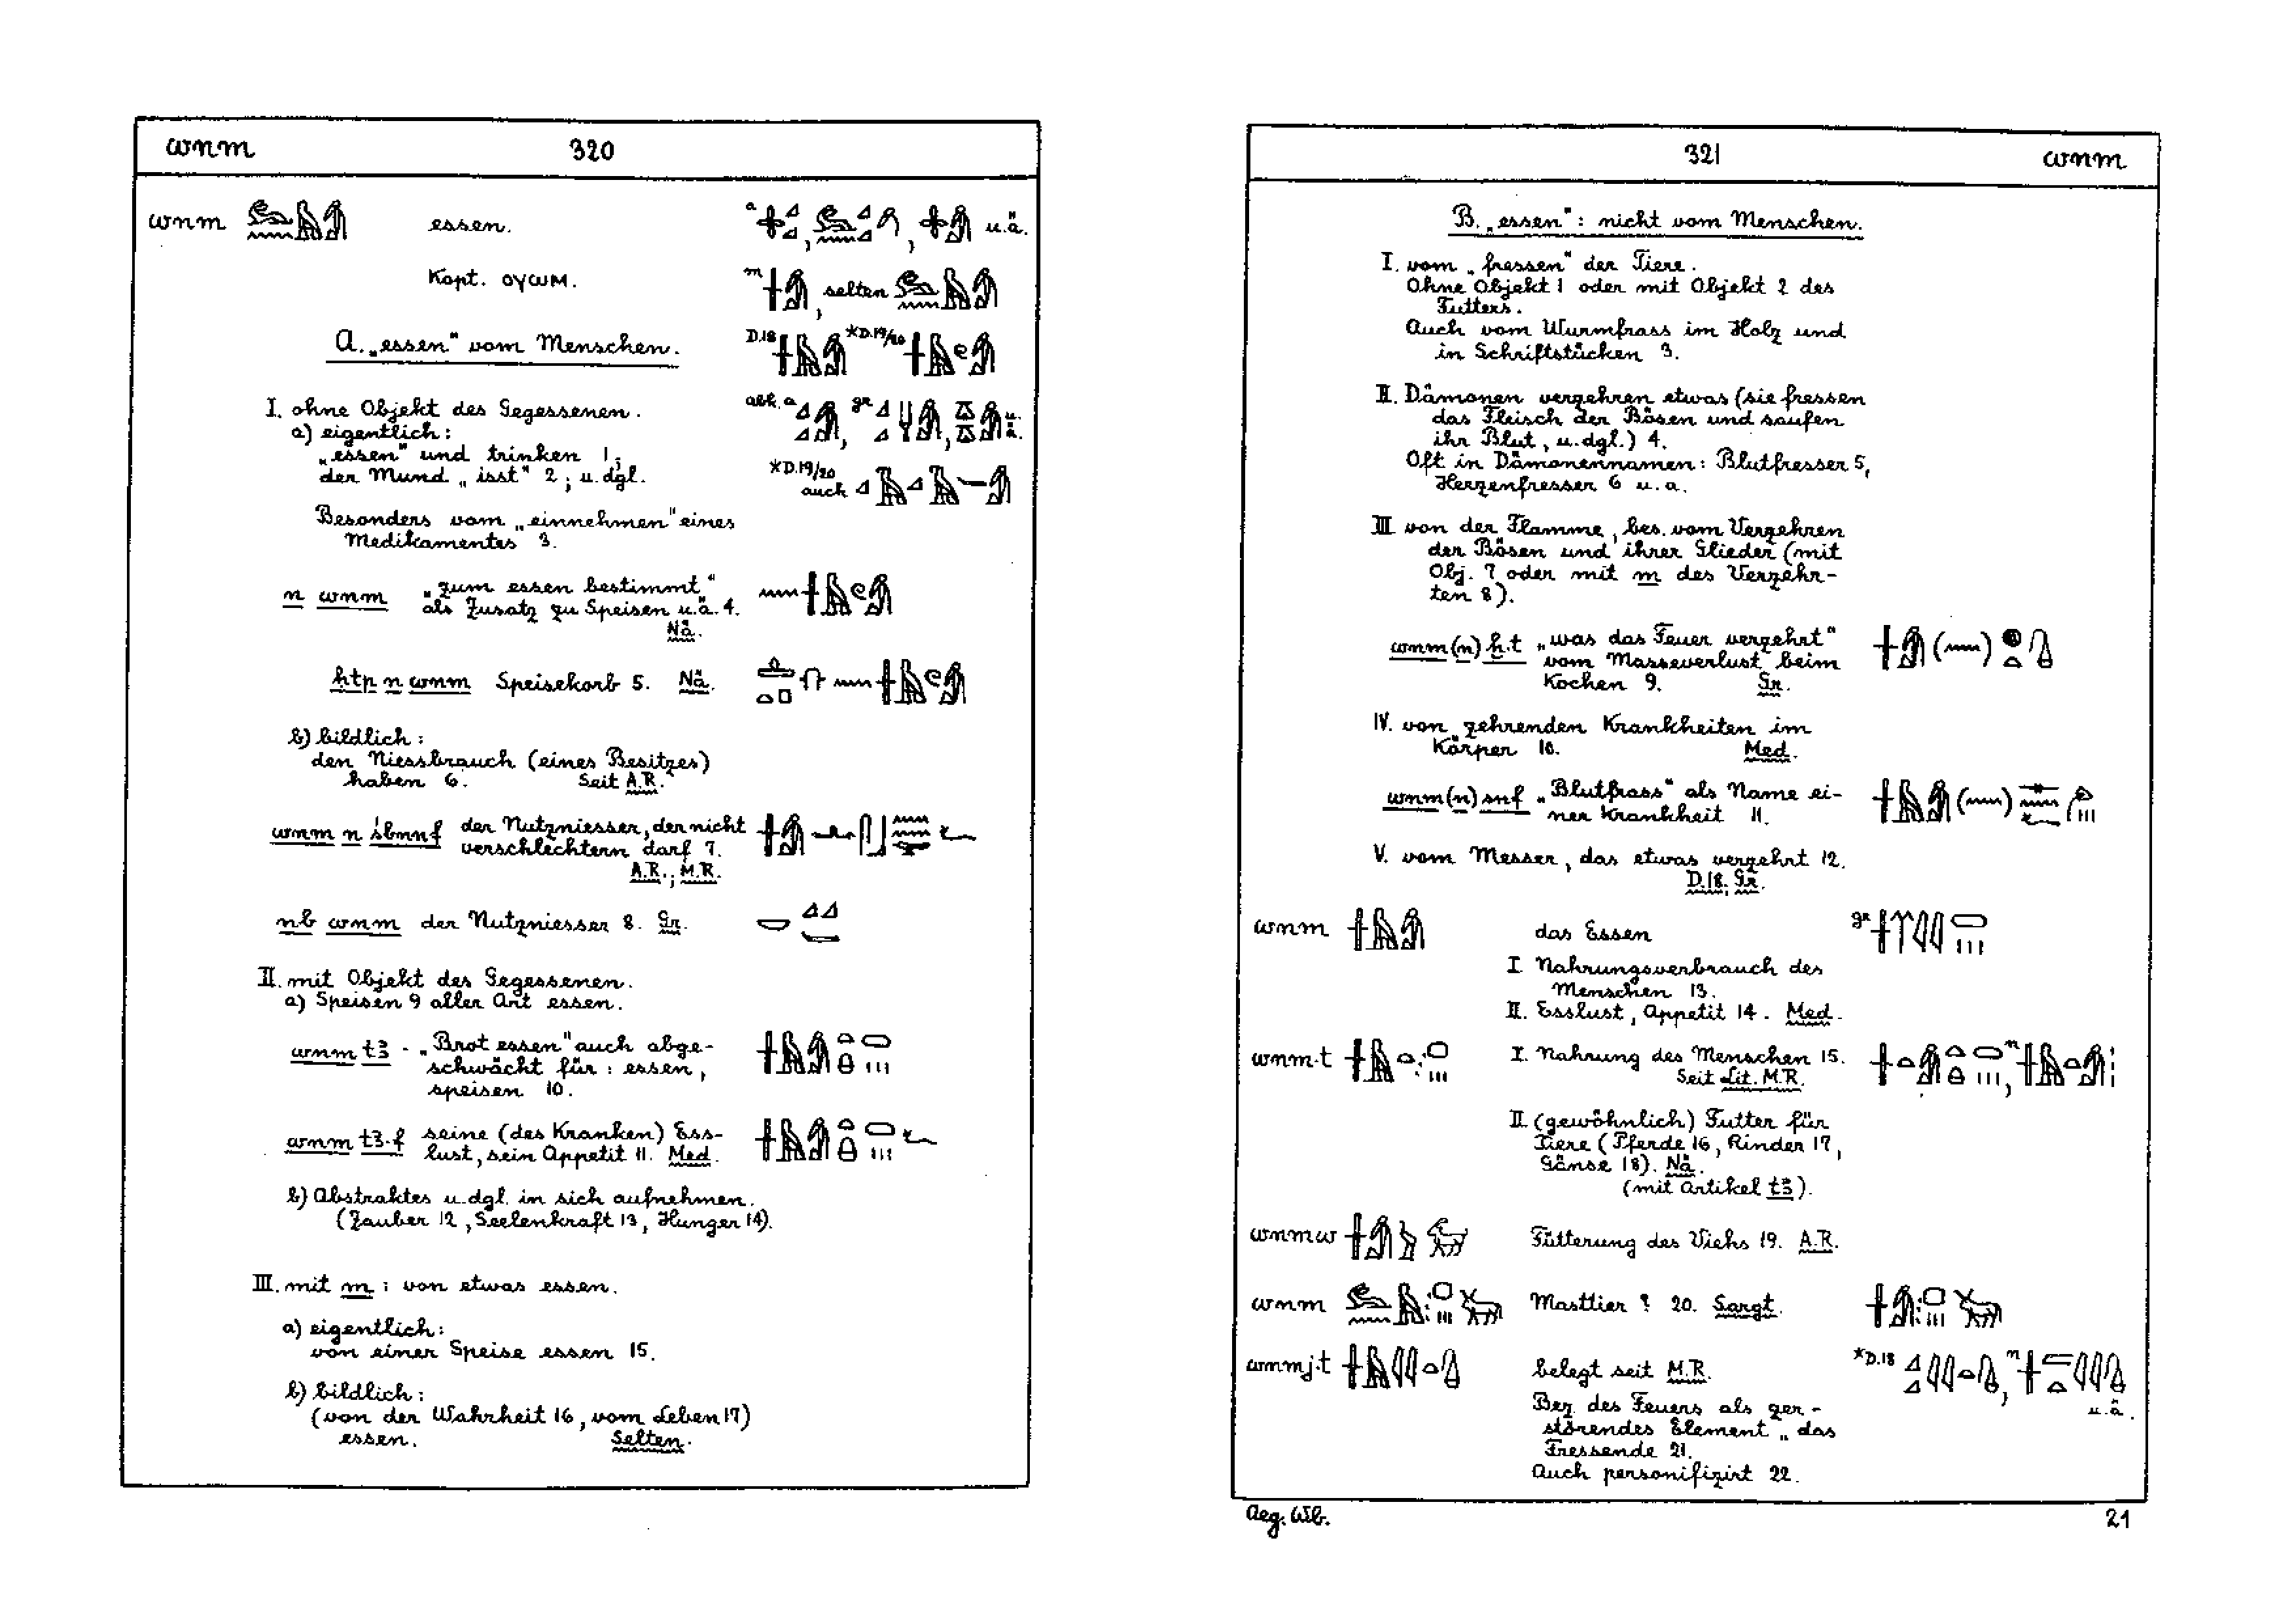 wnm 320
wnm essen. a u.ä.
Kopt. ⲟⲩⲱⲙ. m , selten
A. „essen" vom Menschen. D.18 *D.19/20
I. ohne Objekt des Gegessenen. abk. a , gr , u. ä.
a) eigentlich:
„essen" und trinken 1;
der Mund „isst" 2; u. dgl. *D.19/20 auch
Besonders vom „einnehmen" eines
Medikamentes 3.
n wnm „zum essen bestimmt"
als Zusatz zu Speisen u.ä. 4.
Nä.
ḥtp n wnm Speisekorb 5. Nä.
b) bildlich:
den Niessbrauch (eines Besitzes)
haben 6. Seit A.R.
wnm n śbnnf der Nutzniesser, der nicht
verschlechtern darf 7.
A.R.; M.R.
nb wnm der Nutzniesser 8. Gr.
II. mit Objekt des Gegessenen.
a) Speisen 9 aller Art essen.
wnm t3 - „Brot essen" auch abge-
schwächt für: essen,
speisen 10.
wnm t3.f seine (des Kranken) Ess-
lust, sein Appetit 11. Med.
b) Abstraktes u. dgl. in sich aufnehmen.
(Zauber 12, Seelenkraft 13, Hunger 14).
III. mit m: von etwas essen.
a) eigentlich:
von einer Speise essen 15.
b) bildlich:
(von der Wahrheit 16, vom Leben 17)
essen. Selten.
321 wnm
B. „essen": nicht vom Menschen.
I. vom „fressen" der Tiere.
Ohne Objekt 1 oder mit Objekt 2 des
Futters.
Auch vom Wurmfrass im Holz und
in Schriftstücken 3.
II. Dämonen verzehren etwas (sie fressen
das Fleisch der Bösen und saufen
ihr Blut, u. dgl.) 4.
Oft in Dämonennamen: Blutfresser 5,
Herzenfresser 6 u. a.
III von der Flamme, bes. vom Verzehren
der Bösen und ihrer Glieder (mit
Obj. 7 oder mit m des Verzehr-
ten 8).
wnm (n) ḫ.t „was das Feuer verzehrt"
vom Masseverlust beim
Kochen 9. Gr.
IV. von zehrenden Krankheiten im
Körper 10. Med.
wnm (n) snf „Blutfrass" als Name ei-
ner Krankheit 11.
V. vom Messer, das etwas verzehrt 12.
D.18; Gr.
wnm das Essen gr
I. Nahrungsverbrauch des
Menschen 13.
II. Esslust, Appetit 14. Med.
wnm.t I. Nahrung des Menschen 15. n
Seit Lit. M.R.
II. (gewöhnlich) Futter für
Tiere (Pferde 16, Rinder 17,
Gänse 18). Nä.
(mit Artikel t3).
wnmw Fütterung des Viehs 19. A.R.
wnm Masttier ? 20. Sargt.
wnmj.t belegt seit M.R. *D.18 , n
Bez. des Feuers als zer- u. ä.
störendes Element „das
Fressende 21.
Auch personifizirt 22.
Aeg. Wb. 21